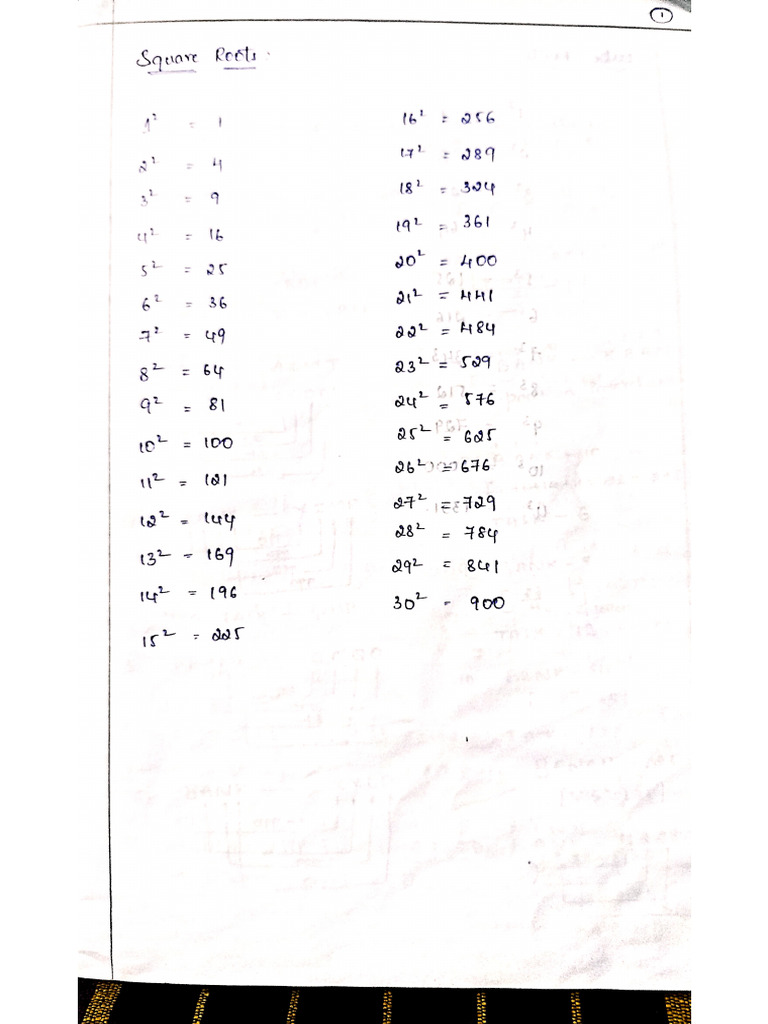 1
Square Roots:
1² = 1
2² = 4
3² = 9
4² = 16
5² = 25
6² = 36
7² = 49
8² = 64
9² = 81
10² = 100
11² = 121
12² = 144
13² = 169
14² = 196
15² = 225
16² = 256
17² = 289
18² = 324
19² = 361
20² = 400
21² = 441
22² = 484
23² = 529
24² = 576
25² = 625
26² = 676
27² = 729
28² = 784
29² = 841
30² = 900